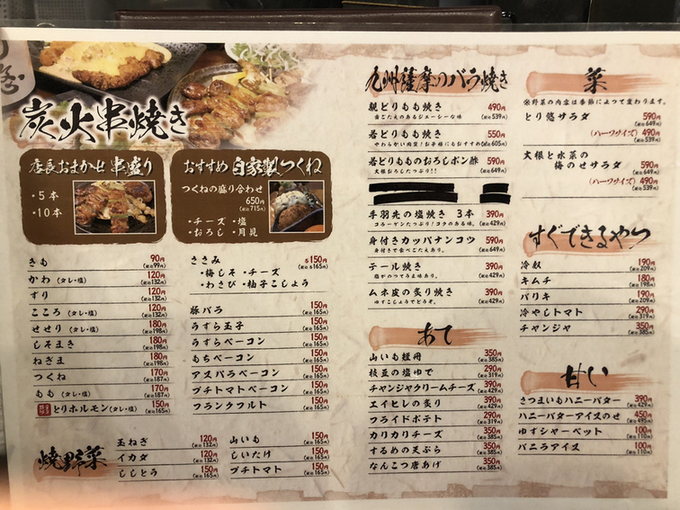 炭火串焼き
店長おまかせ 串盛り
・5本
・10本
おすすめ 自家製つくね
つくねの盛り合わせ
650円
(税込715円)
・チーズ ・塩
・おろし ・月見
きも 90円 (税込99円)
かわ (タレ・塩) 120円 (税込132円)
ずり 120円 (税込132円)
こころ (タレ・塩) 120円 (税込132円)
せせり (タレ・塩) 180円 (税込198円)
しそまき 180円 (税込198円)
ねぎま 180円 (税込198円)
つくね 170円 (税込187円)
もも (タレ・塩) 170円 (税込187円)
とりホルモン (タレ・塩) 150円 (税込165円)
ささみ 各150円 (税込165円)
・梅しそ ・チーズ
・わさび ・柚子こしょう
豚バラ 150円 (税込165円)
うずら玉子 150円 (税込165円)
うずらベーコン 150円 (税込165円)
もちベーコン 150円 (税込165円)
アスパラベーコン 150円 (税込165円)
プチトマトベーコン 150円 (税込165円)
フランクフルト 150円 (税込165円)
焼野菜
玉ねぎ 120円 (税込132円)
イカダ 120円 (税込132円)
ししとう 150円 (税込165円)
山いも 150円 (税込165円)
しいたけ 150円 (税込165円)
プチトマト 150円 (税込165円)
九州薩摩のバラ焼き
親どりもも焼き 490円 (税込539円)
歯ごたえのあるジューシーな味
若どりもも焼き 550円 (税込605円)
やわらかい肉質!お子様にもおすすめ
若どりもものおろしポン酢 590円 (税込649円)
大根おろしたっぷり!!
手羽先の塩焼き 3本 390円 (税込429円)
コラーゲンたっぷり!コクのある味。
身付きカッパナンコツ 590円 (税込649円)
身付きで食べごたえあり。
テール焼き 390円 (税込429円)
脂がのってうまみ有。
ムネ皮の炙り焼き 390円 (税込429円)
ゆずこしょうでどうぞ。
あて
山いも短冊 350円 (税込385円)
枝豆の塩ゆで 290円 (税込319円)
チャンジャクリームチーズ 390円 (税込429円)
エイヒレの炙り 390円 (税込429円)
フライドポテト 290円 (税込319円)
カリカリチーズ 350円 (税込385円)
するめの天ぷら 350円 (税込385円)
なんこつ唐あげ 350円 (税込385円)
菜
※野菜の内容は季節によって変わります。
とり悠サラダ 590円 (税込649円)
(ハーフサイズ) 490円 (税込539円)
大根と水菜の
梅のせサラダ 590円 (税込649円)
(ハーフサイズ) 490円 (税込539円)
すぐできるやつ
冷奴 190円 (税込209円)
キムチ 180円 (税込198円)
パリキ 190円 (税込209円)
冷やしトマト 290円 (税込319円)
チャンジャ 350円 (税込385円)
甘い
さつまいもハニーバター 390円 (税込429円)
ハニーバターアイスのせ 450円 (税込495円)
ゆずシャーベット 100円 (税込110円)
バニラアイス 100円 (税込110円)